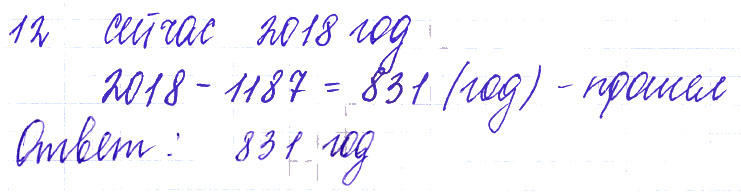 12 сейчас 2018 год
2018 - 1187 = 831 (год) - прошел
Ответ: 831 год